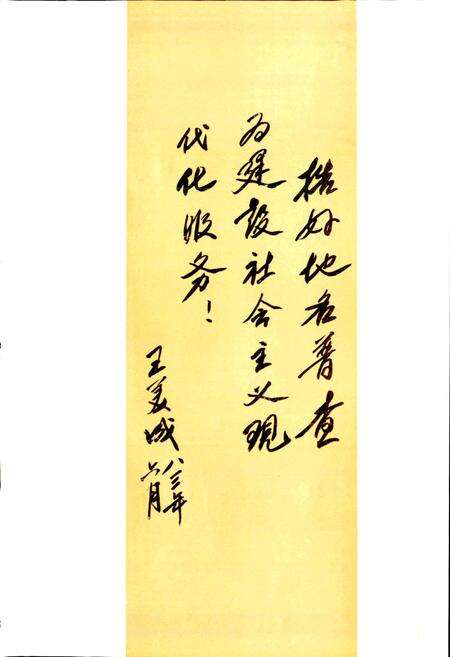 搞好地名普查
为建设社会主义现
代化服务！
王美成
八三年
六月